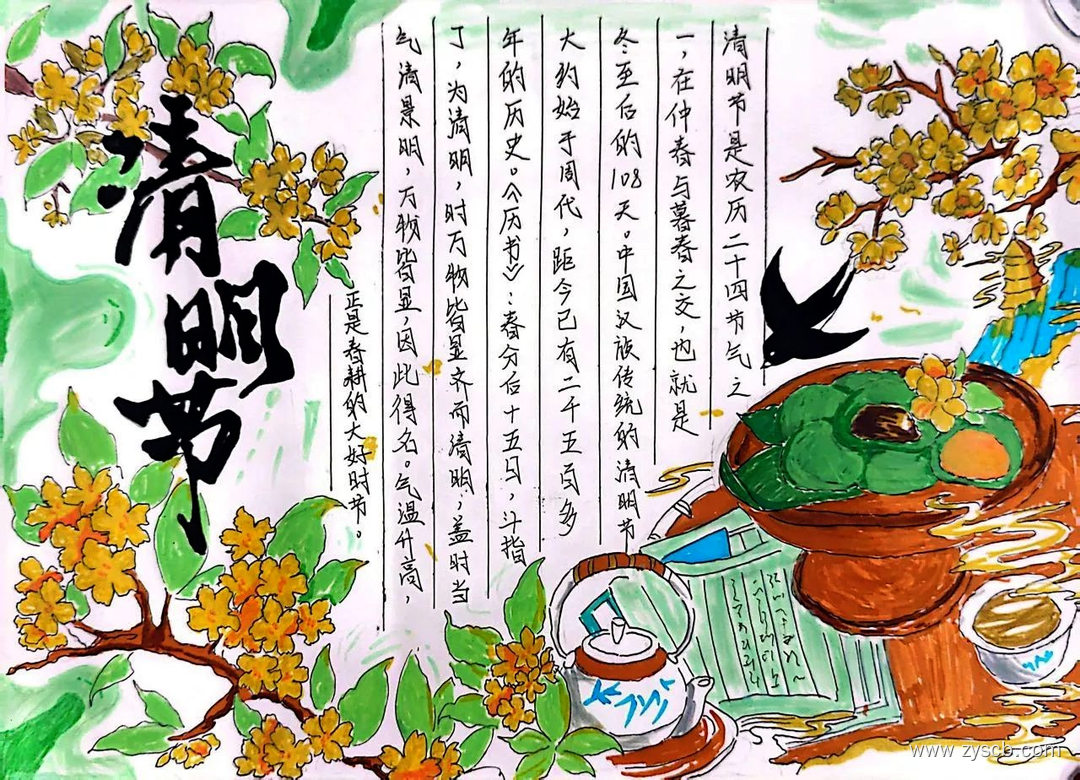 清明节
清明节是农历二十四节气之
一，在仲春与暮春之交，也就是
冬至后的108天。中国汉族传统的清明节
大约始于周代，距今已有二千五百多
年的历史。《历书》：春分后十五日，斗指
丁，为清明，时万物皆显齐而清明，盖时当
气清景明，万物皆显，因此得名。气温升高，
正是春耕的大好时节。
www.zyscb.com